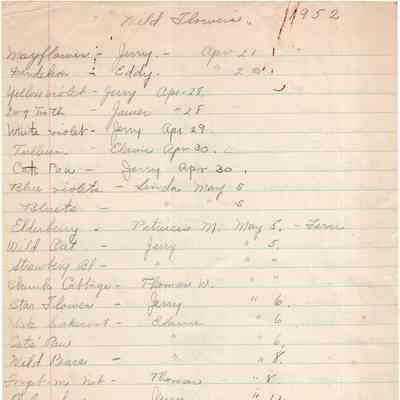 Wild Flowers. 1952
Mayflower - Jerry - Apr 21
Dandelion - Eddy. " 2
Yellow violet - Jerry Apr. 28
Dog Tooth - James " 28
White violet - Jerry Apr 29.
Trillium - Elaine Apr 30.
Cats Paw - Jerry Apr 30.
Blue violets - Linda May 5
Bluets - " " 5
Elderberry - Patricia M. May 5. - Fern
Wild Oat - Jerry " 5.
Strawberry Bl - " " "
Skunk Cabbage - Thomas W. " "
Star Flower - Jerry " 6.
Elaine " 6
Cats' Paw " " 6,
Wild Pear " " 8.
Forget me Not - Thomas " 8
Jerry "